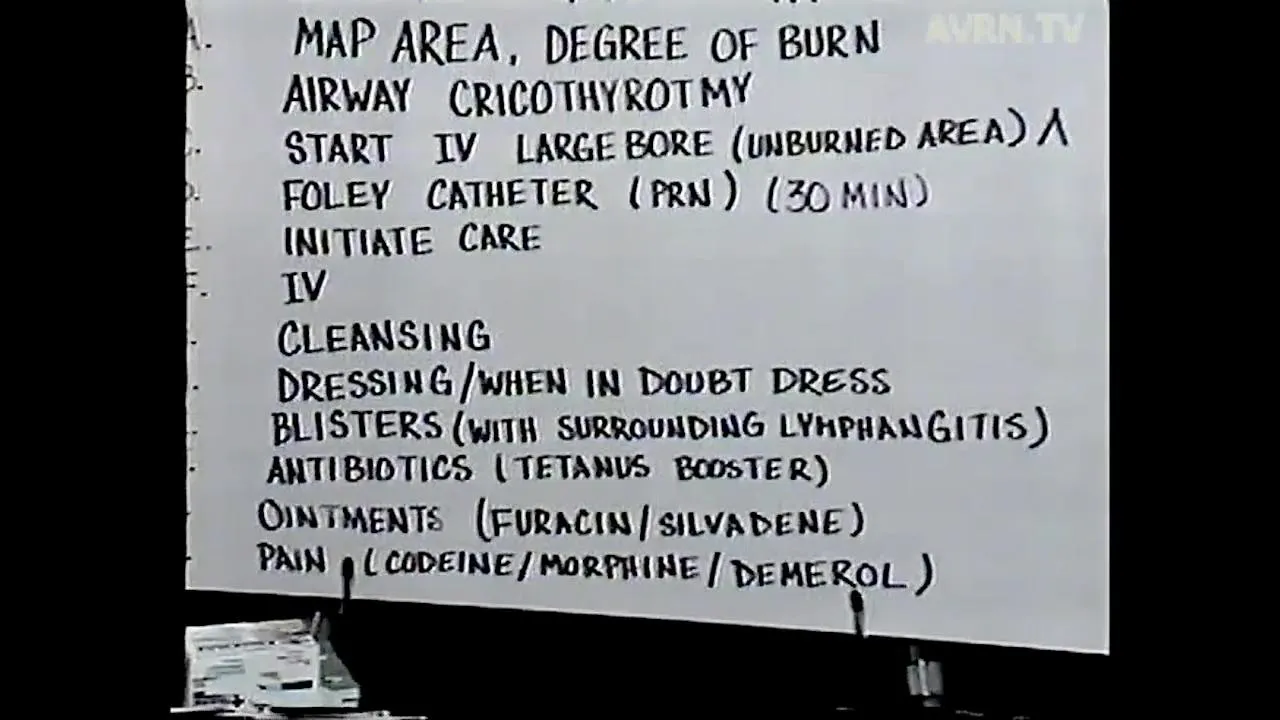 AVRN.TV
A. MAP AREA, DEGREE OF BURN
B. AIRWAY CRICOTHYROTMY
C. START IV LARGE BORE (UNBURNED AREA) Λ
D. FOLEY CATHETER (PRN) (30 MIN)
E. INITIATE CARE
F. IV
CLEANSING
DRESSING/WHEN IN DOUBT DRESS
BLISTERS (WITH SURROUNDING LYMPHANGITIS)
ANTIBIOTICS (TETANUS BOOSTER)
OINTMENTS (FURACIN/SILVADENE)
PAIN (CODEINE/MORPHINE/DEMEROL)